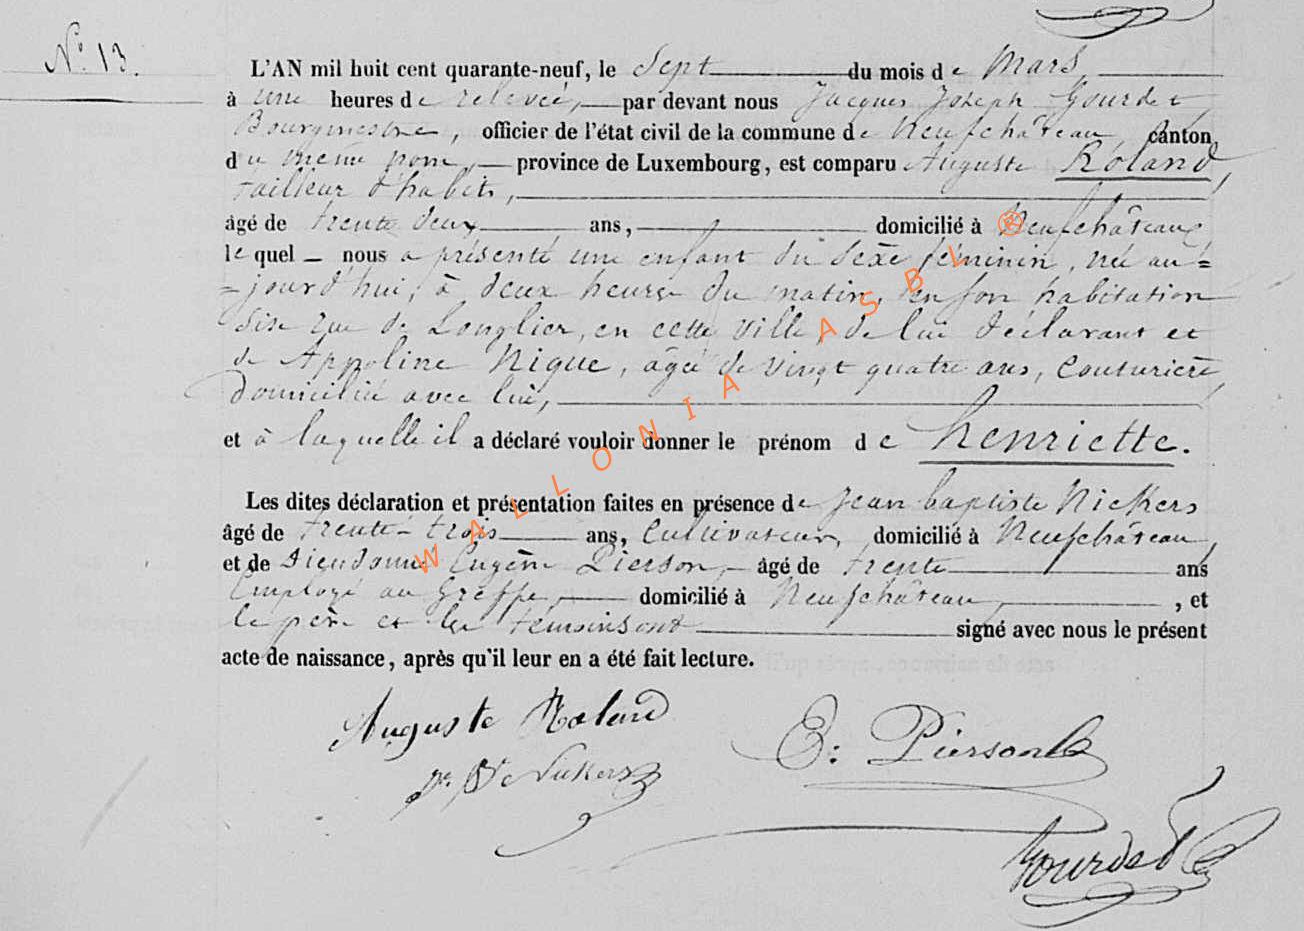 N.° 13.
L'AN mil huit cent quarante-neuf, le Sept du mois de Mars,
à une heures de relevée, par devant nous Jacques Joseph Gourdet,
Bourgmestre, officier de l'état civil de la commune de Neufchâteau, canton
du même nom, province de Luxembourg, est comparu Auguste Roland,
tailleur d'habits,
âgé de trente deux ans, domicilié à Neufchâteau
le quel nous a présenté une enfant du sexe féminin, née au=
=jourd'hui, à deux heures du matin, en son habitation
sise rue de Longlier, en cette ville, de lui déclarant et
de Appoline Nique, âgée de vingt quatre ans, Couturière,
domiciliée avec lui,
et à laquelle il a déclaré vouloir donner le prénom de henriette.
Les dites déclaration et présentation faites en présence de Jean baptiste Nickers
âgé de trente-trois ans, Cultivateur, domicilié à Neufchâteau,
et de Dieudonné Eugène Pierson, âgé de trente ans
Employé au Greffe, domicilié à Neufchâteau, et
le père et les témoins ont signé avec nous le présent
acte de naissance, après qu'il leur en a été fait lecture.
Auguste Roland
E: Pierson
Jn Bte Nickers
Gourdet
® WALLONIA ASBL